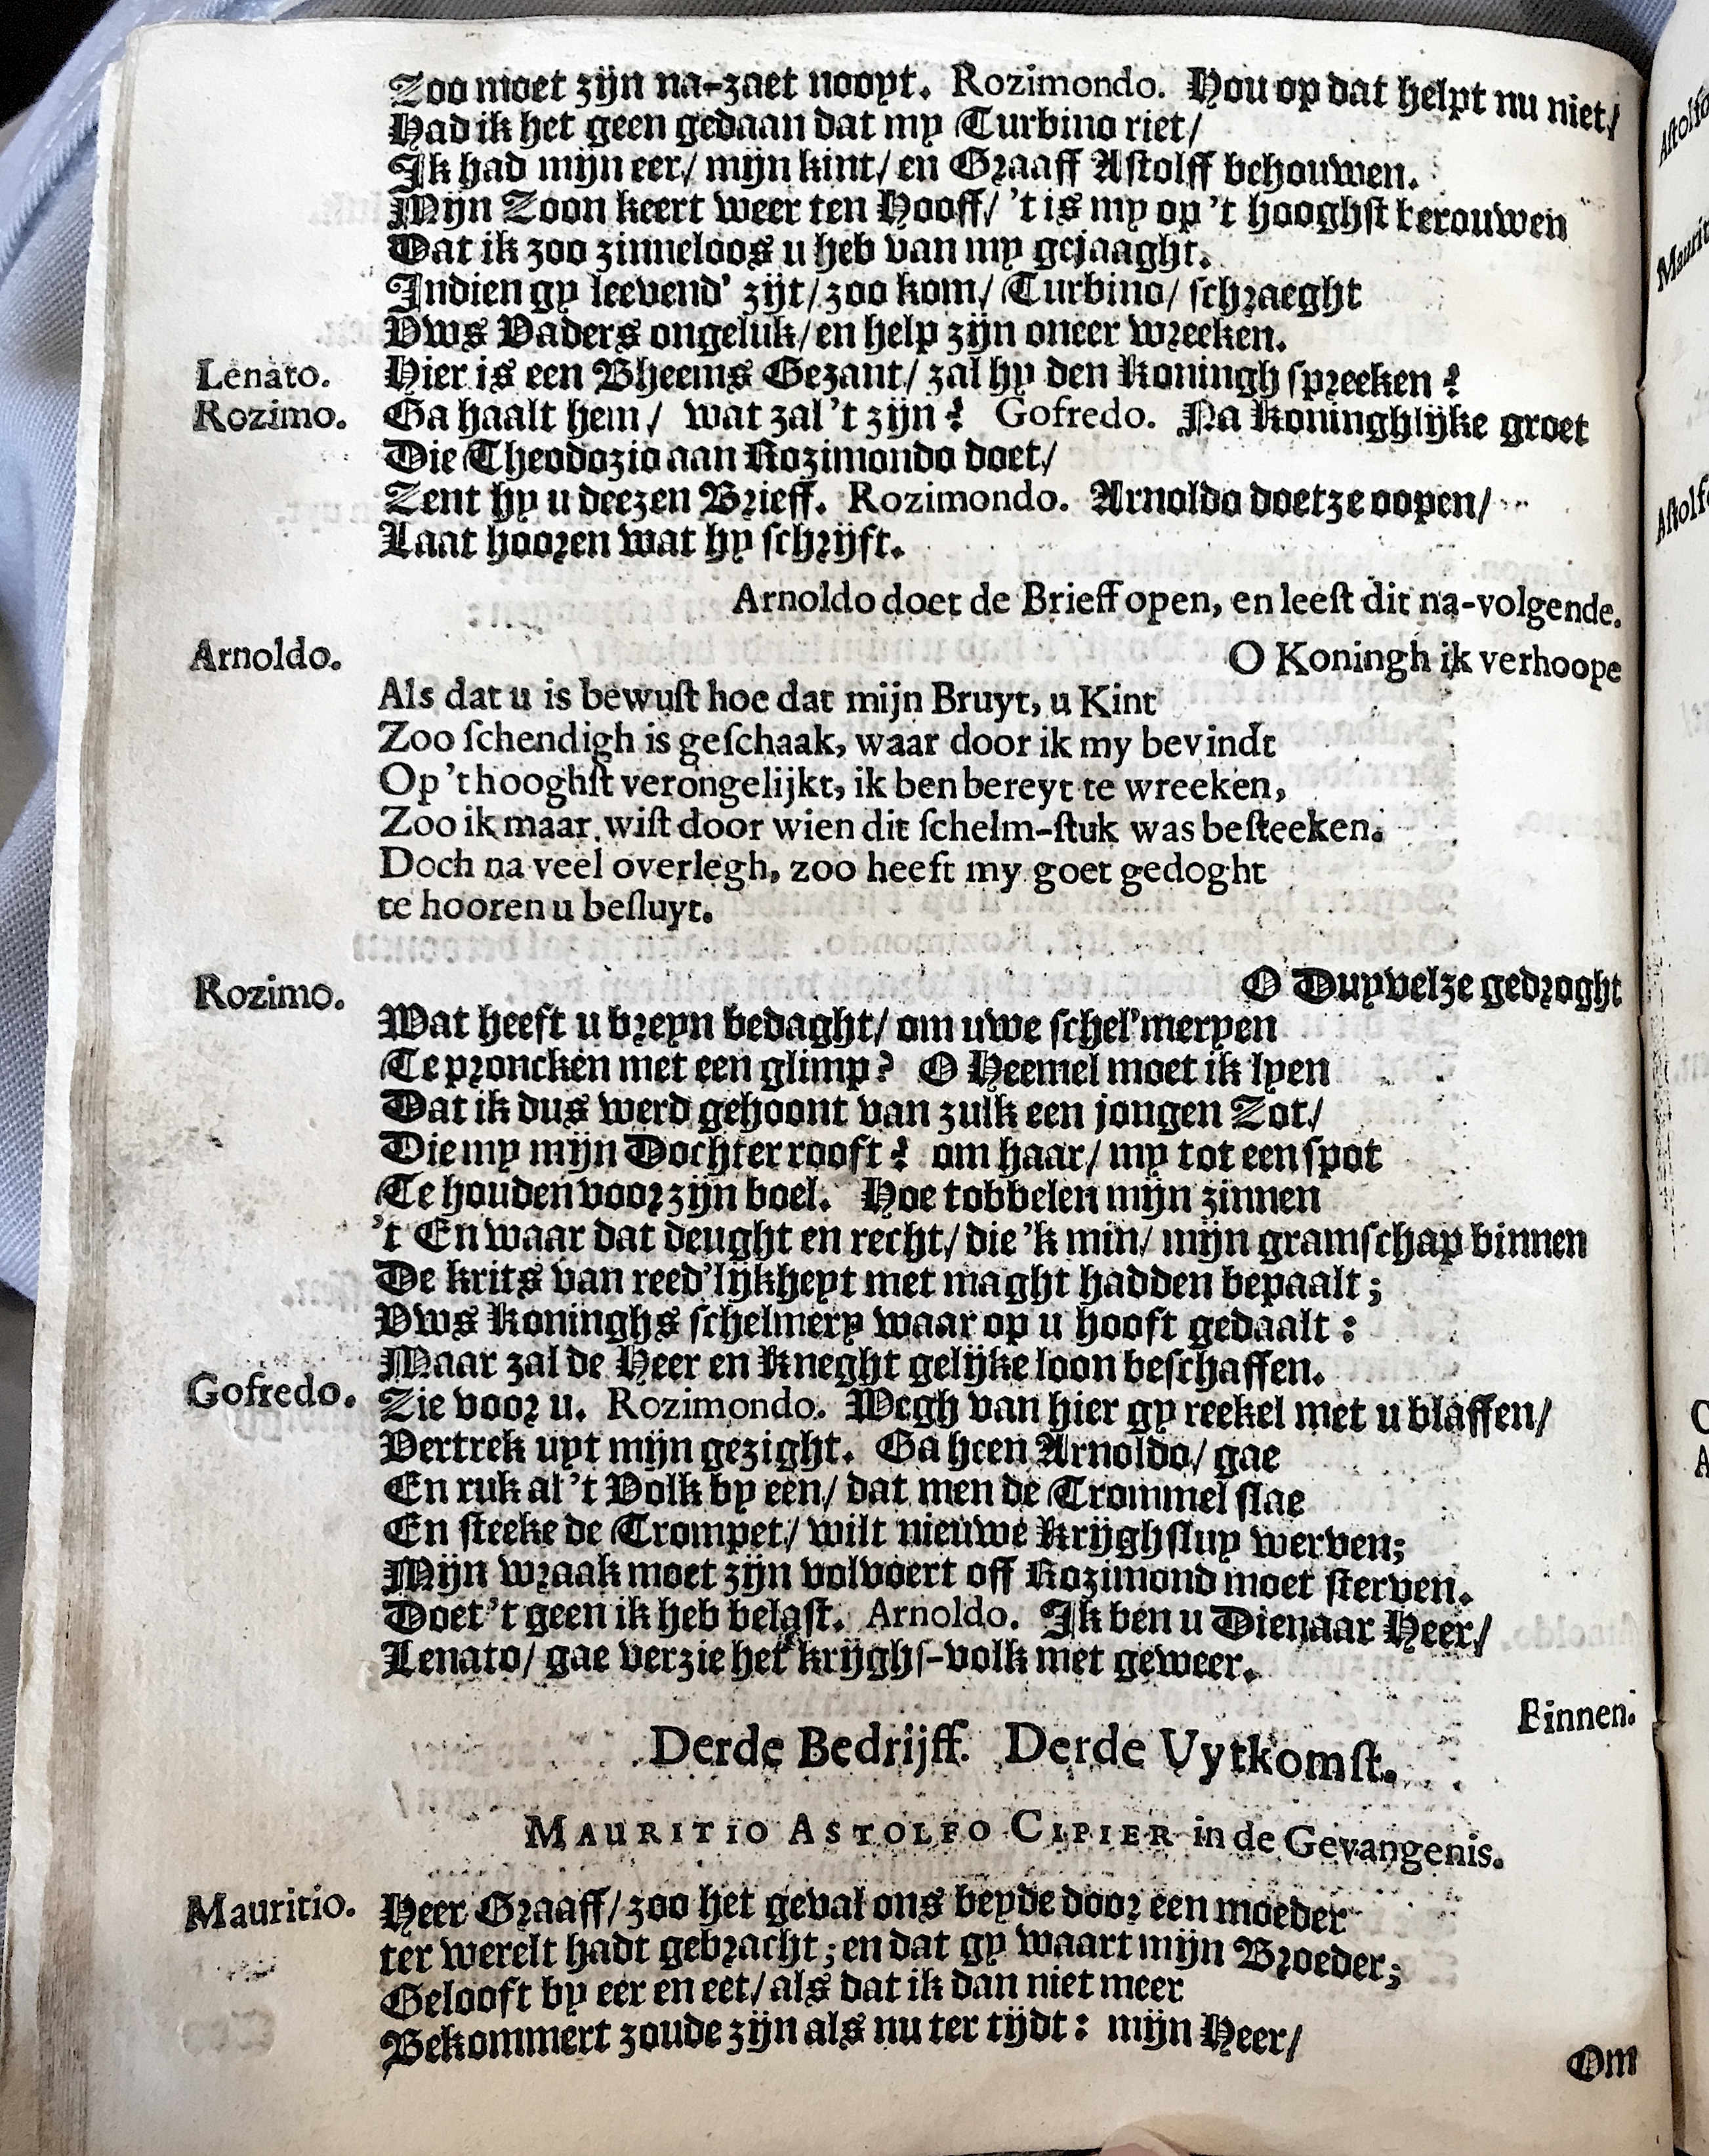 Zoo moet zijn na-zaet noopt. Rozimondo. Hou op dat helpt nu niet/
Had ik het geen gedaan dat my Turbino riet/
Ik had mijn eer/ mijn kint/ en Graaff Astolff behouwen.
Mijn Zoon keert weer ten Hooff/ 't is my op 't hooghst berouwen
Dat ik zoo zinneloos u heb van my gejaaght.
Indien gy leevend' zijt/ zoo kom/ Turbino/ schraeght
Uws Vaders ongeluk/ en help zijn oneer wreeken.
Lenato. Hier is een Bheems Gezant/ zal hy den Koningh spreeken?
Rozimo. Ga haalt hem/ wat zal 't zijn? Gofredo. Na Koninghlijke groet
Die Theodozio aan Rozimondo doet/
Zent hy u deezen Brieff. Rozimondo. Arnoldo doetze oopen/
Laat hooren wat hy schrijft.
Arnoldo doet de Brieff open, en leest dit na-volgende.
Arnoldo. O Koningh ik verhoope
Als dat u is bewust hoe dat mijn Bruyt, u Kint
Zoo schendigh is geschaak, waar door ik my bevindt
Op 't hooghst verongelijkt, ik ben bereyt te wreeken,
Zoo ik maar wist door wien dit schelm-stuk was besteeken.
Doch na veel overlegh, zoo heeft my goet gedoght
te hooren u besluyt.
Rozimo. O Duyvelze gedroght
Wat heeft u breyn bedaght/ om uwe schel'meryen
Te proncken met een glimp? O Heemel moet ik lyen
Dat ik dus werd gehoont van zulk een jongen Zot/
Die my mijn Dochter rooft? om haar/ my tot een spot
Te houden voor zijn boel. Hoe tobbelen mijn zinnen
't En waar dat deught en recht/ die 'k min/ mijn gramschap binnen
De krits van reed'lijkheyt met maght hadden bepaalt;
Uws Koninghs schelmery waar op u hooft gedaalt:
Maar zal de Heer en Kneght gelijke loon beschaffen.
Gofredo. Zie voor u. Rozimondo. Wegh van hier gy reekel met u blaffen/
Vertrek uyt mijn gezight. Ga heen Arnoldo/ gae
En ruk al 't Volk by een/ dat men de Trommel slae
En steeke de Trompet/ wilt nieuwe Krijghsluy werven;
Mijn wraak moet zijn volvoert off Rozimond moet sterven.
Doet 't geen ik heb belast. Arnoldo. Ik ben u Dienaar Heer/
Lenato/ gae verzie het krijghs-volk met geweer.
Binnen.
Derde Bedrijff. Derde Uytkomst.
MAURITIO ASTOLFO CIPIER in de Gevangenis.
Mauritio. Heer Graaff/ zoo het geval ons beyde door een moeder
ter werelt hadt gebracht; en dat gy waart mijn Broeder;
Gelooft by eer en eet/ als dat ik dan niet meer
Bekommert zoude zijn als nu ter tijdt: mijn Heer/
Om